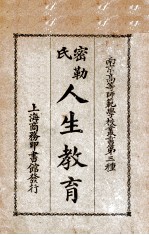 南京高等師範學校叢書第三種
密勒氏
人生教育
上海商務印書館發行